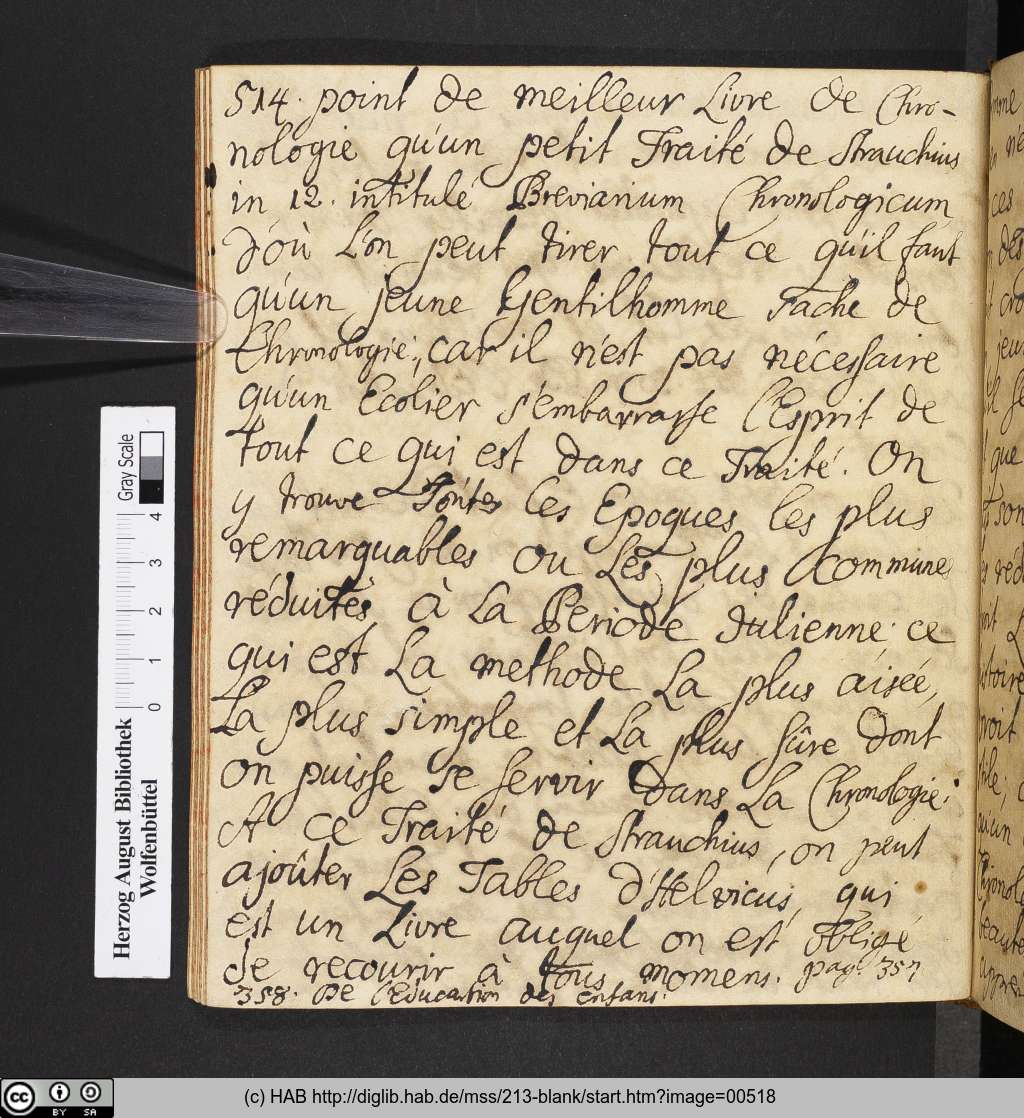 514. point de meilleur Livre de Chro-
nologie qu'un petit Traité de Strauchius
in 12. intitulé Breviarium Chronologicum
d'où l'on peut tirer tout ce qu'il faut
qu'un jeune Gentilhomme sache de
Chronologie; car il n'est pas nécessaire
qu'un Ecolier s'embarrasse l'Esprit de
tout ce qui est dans ce Traité. On
y trouve Toutes les Epoques les plus
remarquables ou les plus commune
réduites à la Periode Julienne: ce
qui est la methode la plus aisée,
la plus simple et la plus sûre dont
on puisse se servir dans la Chronologie:
A ce Traité de Strauchius, on peut
ajoûter Les Tables d'Helvicus, qui
est un Livre auquel on est obligé
de recourir à tous momens. pag. 357
358. De l'Education des enfans.
Gray Scale
4
3
2
1
0
Herzog August Bibliothek
Wolfenbüttel
cc BY SA
(c) HAB http://diglib.hab.de/mss/213-blank/start.htm?image=00518